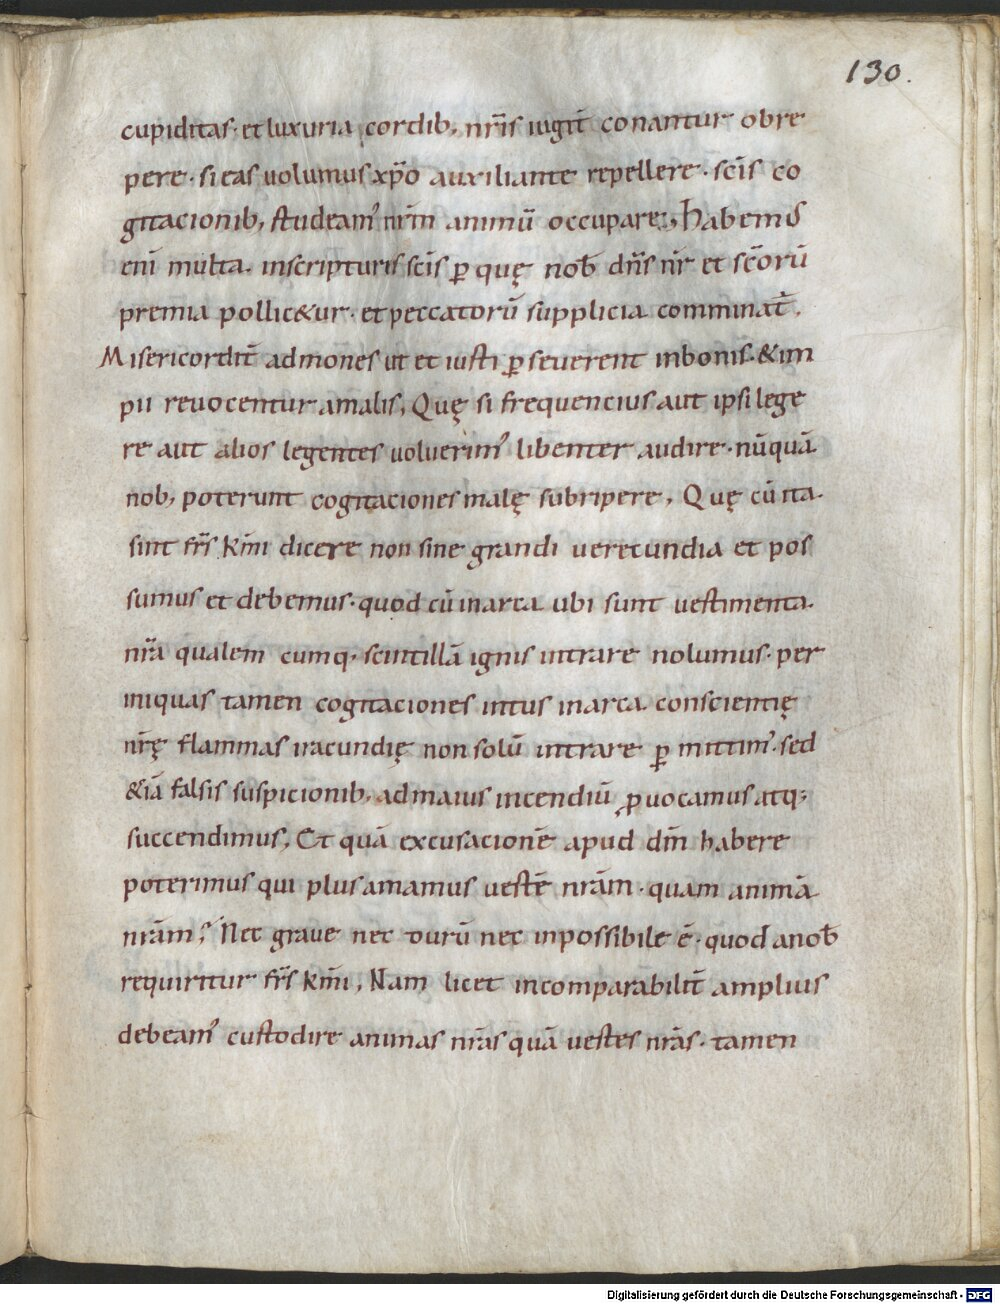 130.
cupiditas· et luxuria cordib; nr̄is iugit̄ conantur obre
pere· si eas uolumus xp̄o auxiliante repellere· sc̄is co
gitacionib; studeam' nr̄m animū occupare; habemus
eni̅ multa. inscripturis sc̄is ꝑ quę nob̄ dn̄s nr̄ et sc̄orū
premia pollic&ur· et peccatorū supplicia comminat̄.
Misericordit̄ admones ut et iusti ꝑseuerent inbonis· & im
pii reuocentur amalis, Quę si frequencius aut ipsi lege
re aut alios legentes uoluerim' libenter audire· nūquā
nob; poterunt cogitaciones malę subripere, Quę cū ita.
sint fr̄s km̄i dicere non sine grandi uerecundia et pos
sumus et debemus· quod cū inarca ubi sunt uestimenta.
nr̄a qualem cumq· scintillā ignis intrare nolumus· per
iniquas tamen cogitaciones intus inarca conscientię
nr̄ę flammas iracundię non solū intrare ꝑmittim'· sed
&iā falsis suspicionib; admaius incendiū ꝓuocamus atq;
succendimus, Et quā excusacionē apud dm̄ habere
poterimus qui plus amamus uestē nr̄am· quam animā
nr̄am? Nec graue nec durū nec inpossibile ē· quod anob̄
requiritur fr̄s km̄i, Nam licet incomparabilit̄ amplius
debeam' custodire animas nr̄as quā uestes nr̄as· tamen
Digitalisierung gefördert durch die Deutsche Forschungsgemeinschaft - DFG